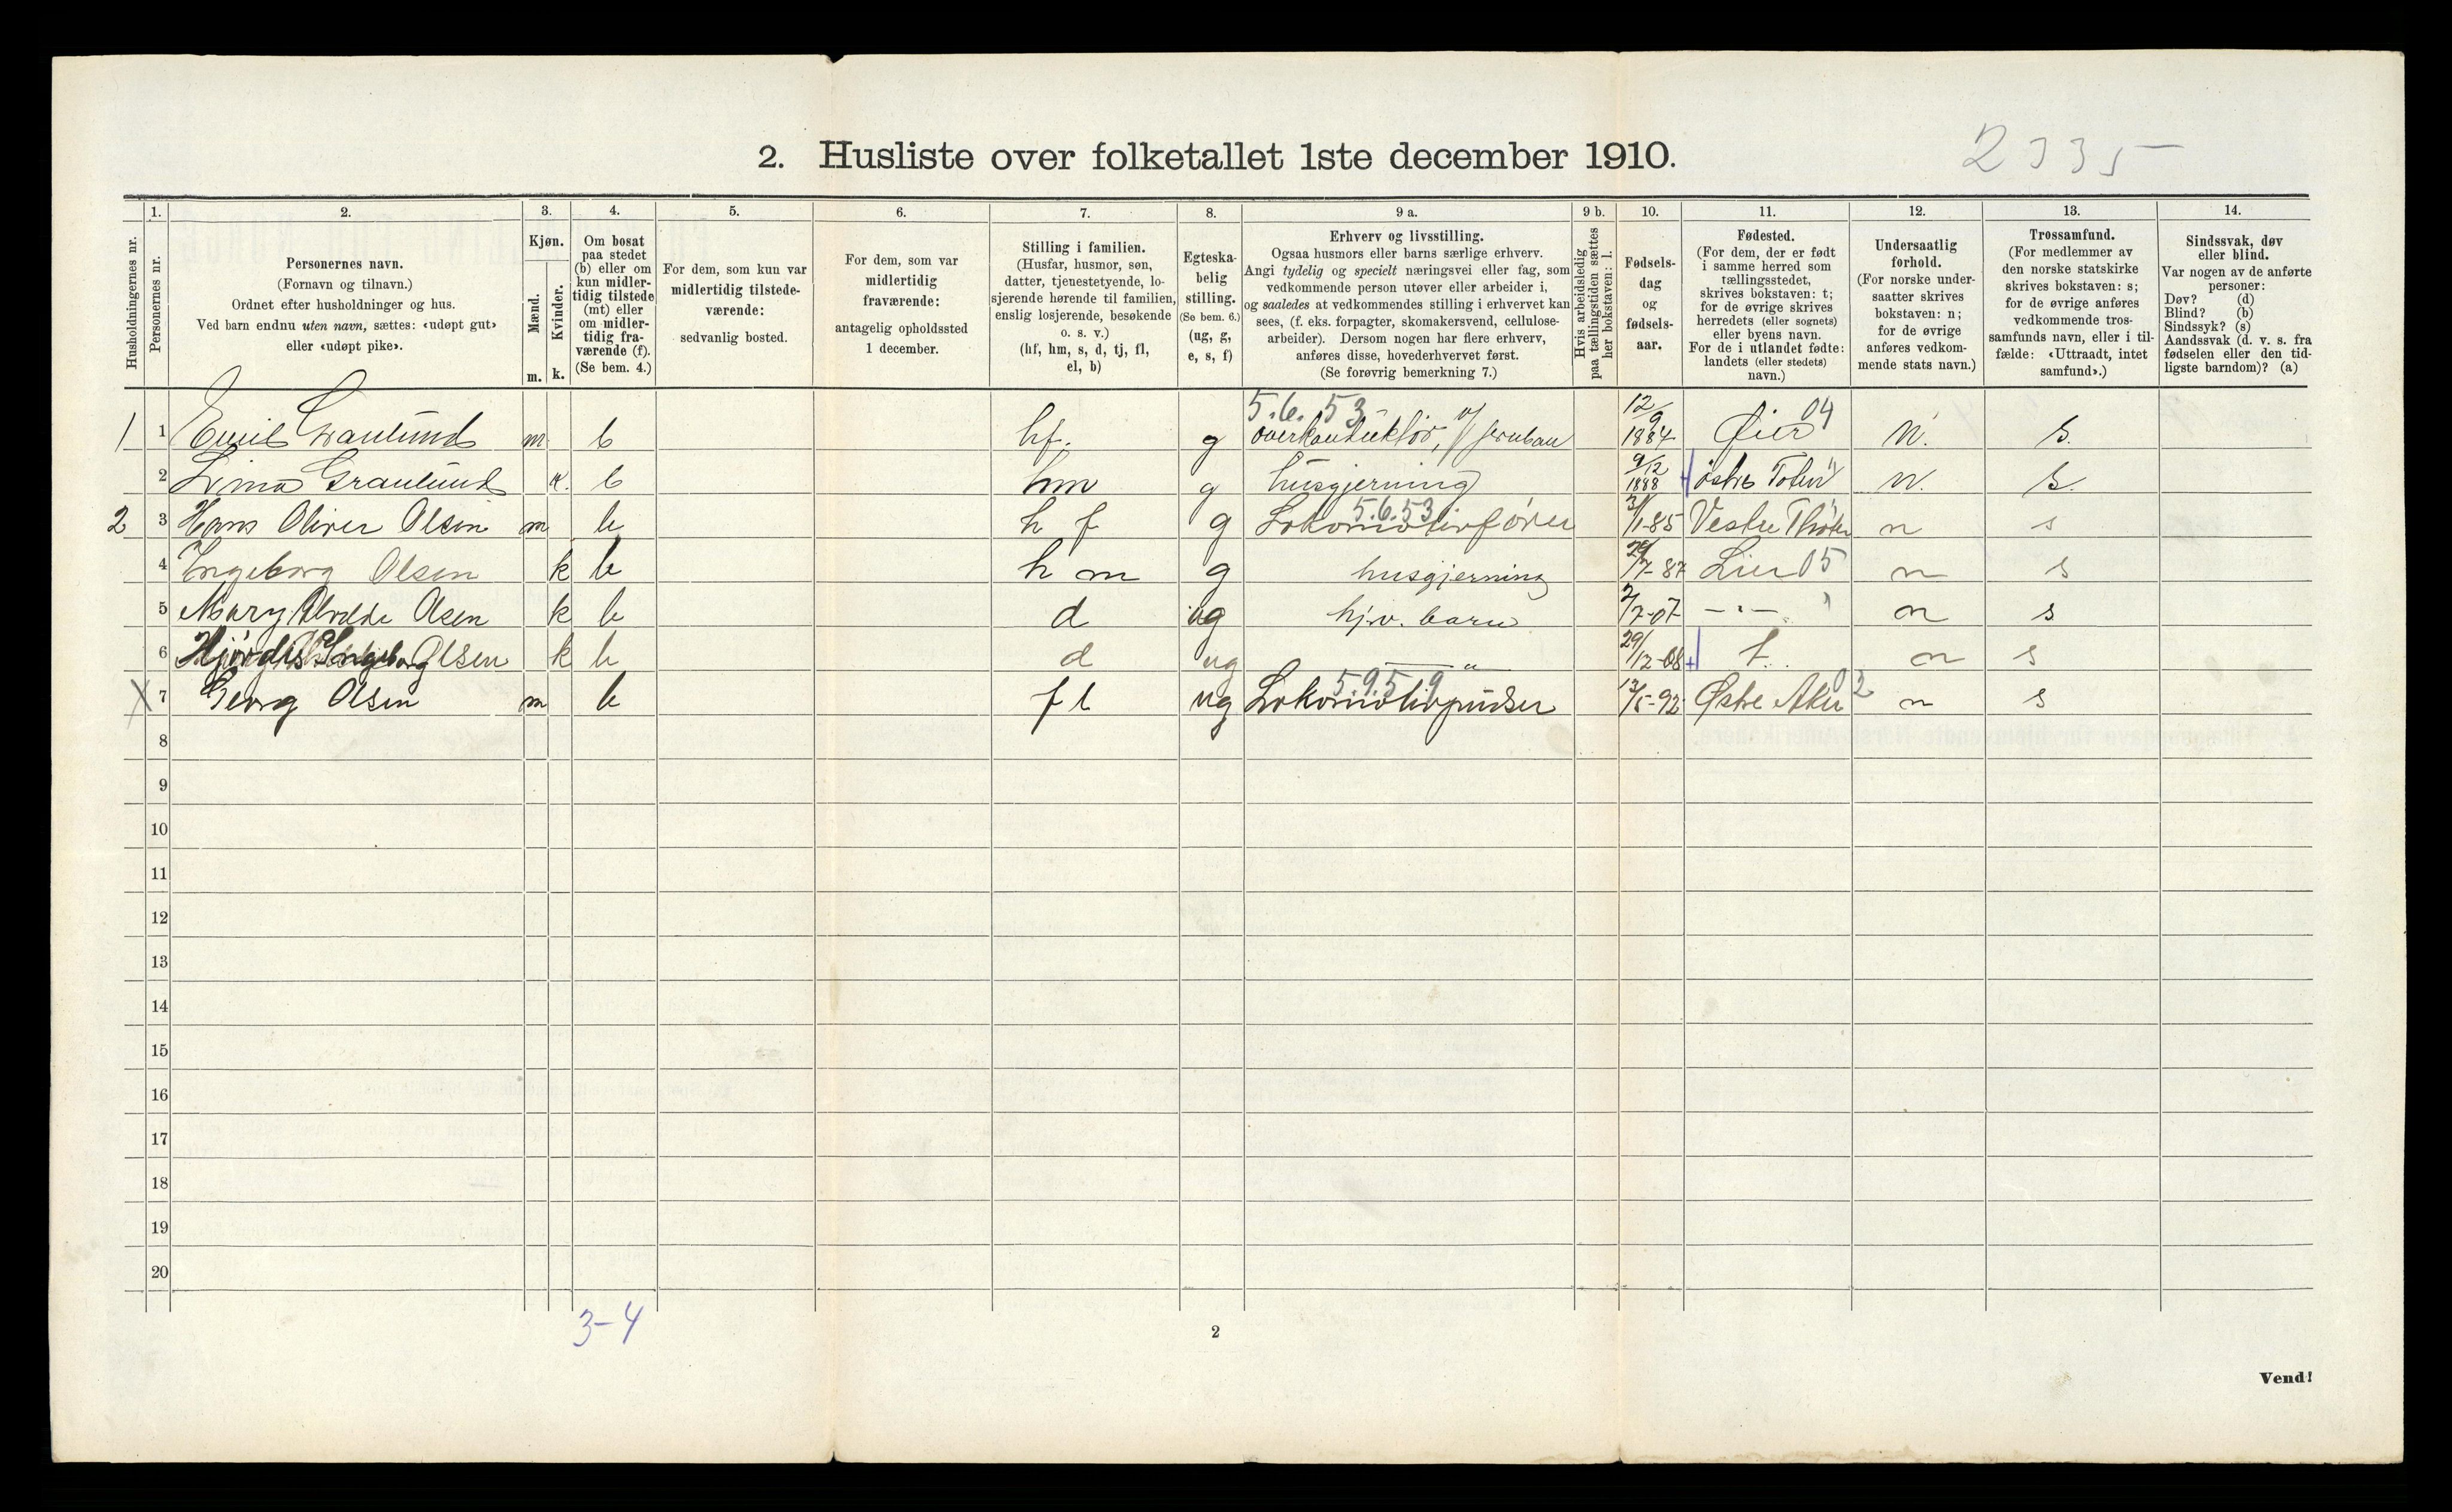 2. Husliste over folketallet 1ste december 1910.
2335
Husholdningernes nr.
1.
Personernes nr.
2.
Personernes navn.
(Fornavn og tilnavn.)
Ordnet efter husholdninger og hus.
Ved barn endnu uten navn, sættes: «udøpt gut»
eller «udøpt pike».
3.
Kjøn.
Mænd.
Kvinder.
m. k.
4.
Om bosat
paa stedet
(b) eller om
kun midler-
tidig tilstede
(mt) eller
om midler-
tidig fra-
værende (f).
(Se bem. 4.)
5.
For dem, som kun var
midlertidig tilstede-
værende:
sedvanlig bosted.
6.
For dem, som var
midlertidig
fraværende:
antagelig opholdssted
1 december.
7.
Stilling i familien.
(Husfar, husmor, søn,
datter, tjenestetyende, lo-
sjerende hørende til familien,
enslig losjerende, besøkende
o. s. v.)
(hf, hm, s, d, tj, fl,
el, b)
8.
Egteska-
belig
stilling.
(Se bem. 6.)
(ug, g,
e, s, f)
9 a.
Erhverv og livsstilling.
Ogsaa husmors eller barns særlige erhverv.
Angi tydelig og specielt næringsvei eller fag, som
vedkommende person utøver eller arbeider i,
og saaledes at vedkommendes stilling i erhvervet kan
sees, (f. eks. forpagter, skomakersvend, cellulose-
arbeider). Dersom nogen har flere erhverv,
anføres disse, hovederhvervet først.
(Se forøvrig bemerkning 7.)
9 b.
Hvis arbeidsledig
paa tællingstiden sættes
her bokstaven: l.
10.
Fødsels-
dag
og
fødsels-
aar.
11.
Fødested.
(For dem, der er født
i samme herred som
tællingsstedet,
skrives bokstaven: t;
for de øvrige skrives
herredets (eller sognets)
eller byens navn.
For de i utlandet fødte:
landets (eller stedets)
navn.)
12.
Undersaatlig
forhold.
(For norske under-
saatter skrives
bokstaven: n;
for de øvrige
anføres vedkom-
mende stats navn.)
13.
Trossamfund.
(For medlemmer av
den norske statskirke
skrives bokstaven: s;
for de øvrige anføres
vedkommende tros-
samfunds navn, eller i til-
fælde: «Uttraadt, intet
samfund».)
14.
Sindssvak, døv
eller blind.
Var nogen av de anførte
personer:
Døv? (d)
Blind? (b)
Sindssyk? (s)
Aandssvak (d. v. s. fra
fødselen eller den tid-
ligste barndom)? (a)
1 1 Emil Granlund m b hf. g 5.6.53 overkonduktør, v/ jernban 12/9 1884 Øier 04 n. s.
2 Granlund k. b hm g husgjerning 9/12 1888 østre Toten n. s.
2 3 Hans Oliver Olsen m b h f g 5.6.53 Lokomotivfører 3/1-85 Vestre n s
4 Ingeborg Olsen k b h m g husgjerning 29/7-87 Lier 05 n s
5 Mary Olsen k b d ug hj.v. barn 2/7-07 — " — n s
6 Hjørdis Ingeborg Olsen k b d ug — " 29/12-08 t. n s
X 7 Georg Olsen m b f l ug 5.9.59 Lokomotivpudser 12/5-92 Østre Aker 02 n s
8
9
10
11
12
13
14
15
16
17
18
19
20
3-4
2
Vend!